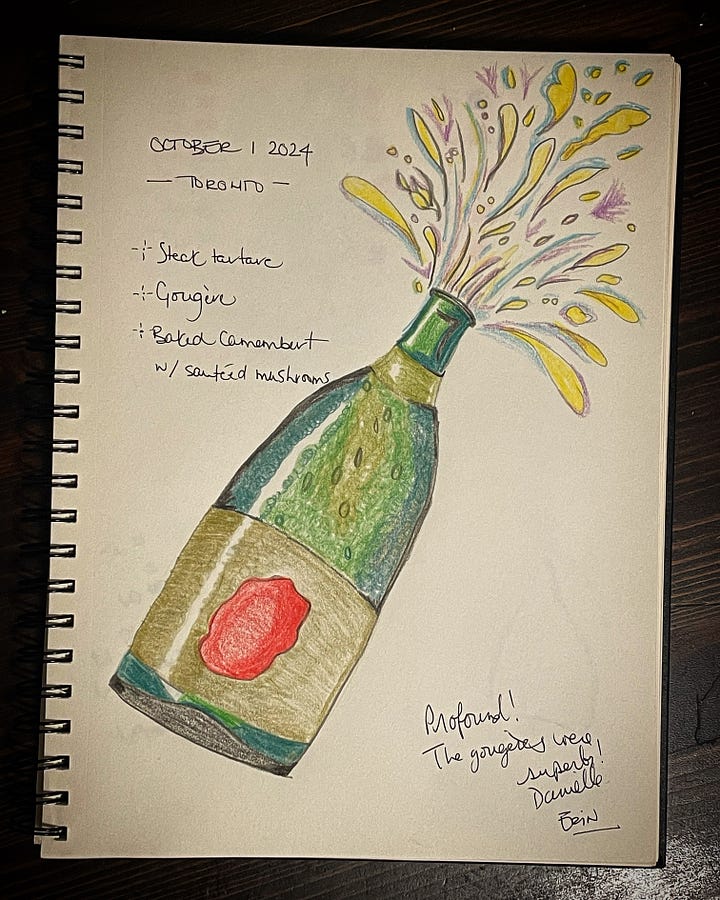 OCTOBER 1 2024
— TORONTO —
Steak tartare
Gougère
Baked Camembert
w/ sautéed mushrooms
Profound!
The gougères were
superb!
Danielle
Erin